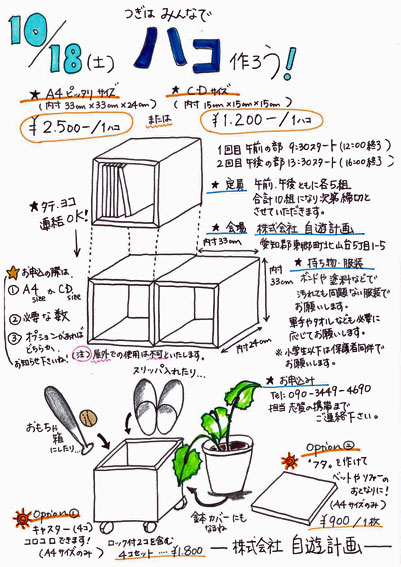 つぎは みんなで
10/18(土) ハコ 作ろう!
★ A4ピッタリサイズ
(内寸 33cm×33cm×24cm)
¥2.500-/1ハコ
または
★ CDサイズ
(内寸 15cm×15cm×15cm)
¥1.200-/1ハコ
1回目 午前の部 9:30スタート(12:00終了)
2回目 午後の部 13:30スタート(16:00終了)
★ 定員 午前、午後ともに各5組
合計10組になり次第 締切と
させていただきます。
★ 会場 株式会社 自遊計画
愛知郡東郷町北山台5丁目1-5
★タテ、ヨコ
連結OK!
内寸33cm
内寸
33cm
内寸24cm
★ 持ち物・服装
ボンドや塗料などで
汚れても問題ない服装で
お願いします。
軍手やタオルなども必要に
応じてお願いします。
※小学生以下は保護者同伴で
お願いします。
★お申込の際は、
① A4 size か CD size
② 必要な数
③ オプションがあれば
どちらか、
お知らせ下さいね!
(注) 屋外での使用は不可といたします。
★ お申込み
Tel: 090-3449-4690
担当 志賀の携帯まで
ご連絡下さい。
スリッパ入れたり…
おもちゃ
箱
にしたり…
鉢カバーにも
なるね
Option①
キャスター(4コ)
コロコロできます!
(A4サイズのみ)
ロック付2コを含む
4コセット … ¥1.800
Option②
"フタ"を付けて
ペットやソファーの
おとなりに!
(A4サイズのみ)
¥900/1枚
— 株式会社 自遊計画 —